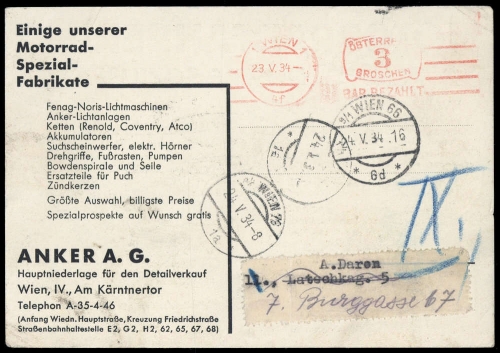 Einige unserer
Motorrad-
Spezial-
Fabrikate
Fenag-Noris-Lichtmaschinen
Anker-Lichtanlagen
Ketten (Renold, Coventry, Atco)
Akkumulatoren
Suchscheinwerfer, elektr. Hörner
Drehgriffe, Fußrasten, Pumpen
Bowdenspirale und Selle
Ersatzteile für Puch
Zündkerzen
Größte Auswahl, billigste Preise
Spezialprospekte auf Wunsch gratis
ANKER A. G.
Hauptniederlage für den Detailverkauf
Wien, IV., Am Kärntnertor
Telephon A-35-4-46
(Anfang Wiedn. Hauptstraße, Kreuzung Friedrichstraße
Straßenbahnhaltestelle E2, G2, H2, 62, 65, 67, 68)
1 WIEN 1
23. V. 34
ÖSTERR
3
GROSCHEN
BAR BEZAHLT
WIEN 66
V. 34 .16
6d
1a
WIEN
24. V. 34-8
1a
IX.
A. Daren
Latschkag. 5
7. Burggasse 67